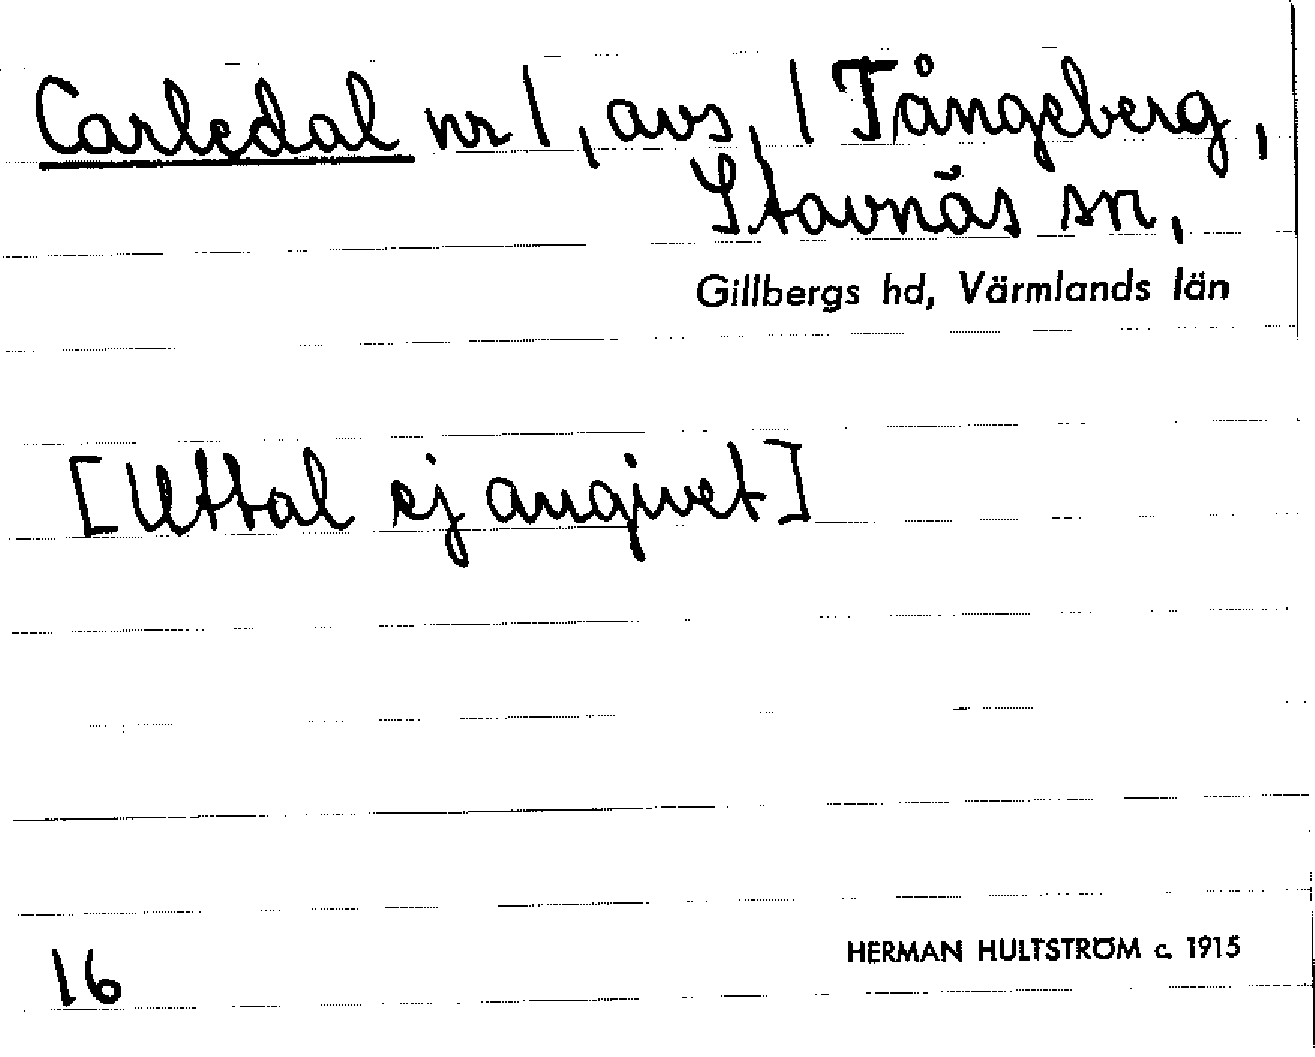 Carledal nr 1, avs, 1 Tångeberg,
Stavnäs sn,
Gillbergs hd, Värmlands län
[Uttal ej angivet]
16
HERMAN HULTSTRÖM c. 1915